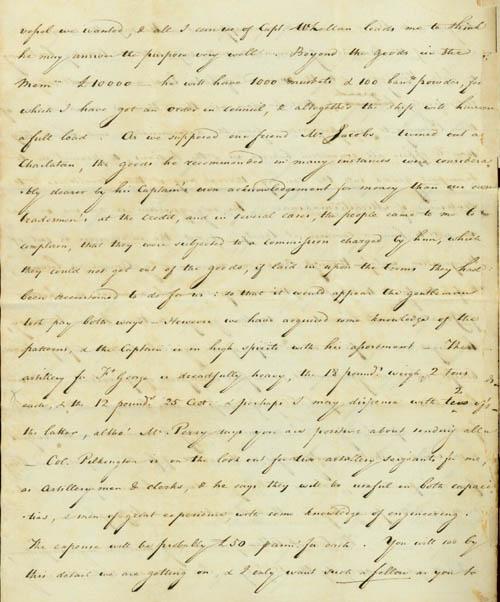 vessel we wanted, & all I can see of Capt Whellan leads me to think
he may answer the purpose very well. Beyond the goods in the
Mem.m £10000 — he will have 1000 muskets & 100 barr.s powder, for
which I have got an order in council, & altogether the ship will have
a full load. As we supposed our friend Mr. Jacobs turned out a
Charlatan, the goods he recommended in many instances were considera
bly dearer by his Captain's own acknowledgement for money than our own
tradesmen's at the credit, and in several cases, the people came to me to
complain, that they were subjected to a commission charged by him, which
they could not get out of the goods, if laid in upon the terms they had
been accustomed to do for us: so that it would appear the gentleman
took pay both ways — However we have acquired some knowledge of the
patterns, & the Captain is in high spirits with his assortment — The
artillery for Ft George is dreadfully heavy, the 18 pound.s weigh 2 tons
each, & the 12 pound.s 25 Cwt. & perhaps I may dispense with two of
the latter, altho' Mr. Perry says you are positive about sending all
— Col. Pilkington is on the look out for two artillery sergeants for me,
as Artillery men & clerks, & he says they will be useful in both capaci
ties, & men of great experience, with some knowledge of engineering.
The expense will be probably £50 p ann for each. You will see by
this detail we are getting on, & I only want such a fellow as you to